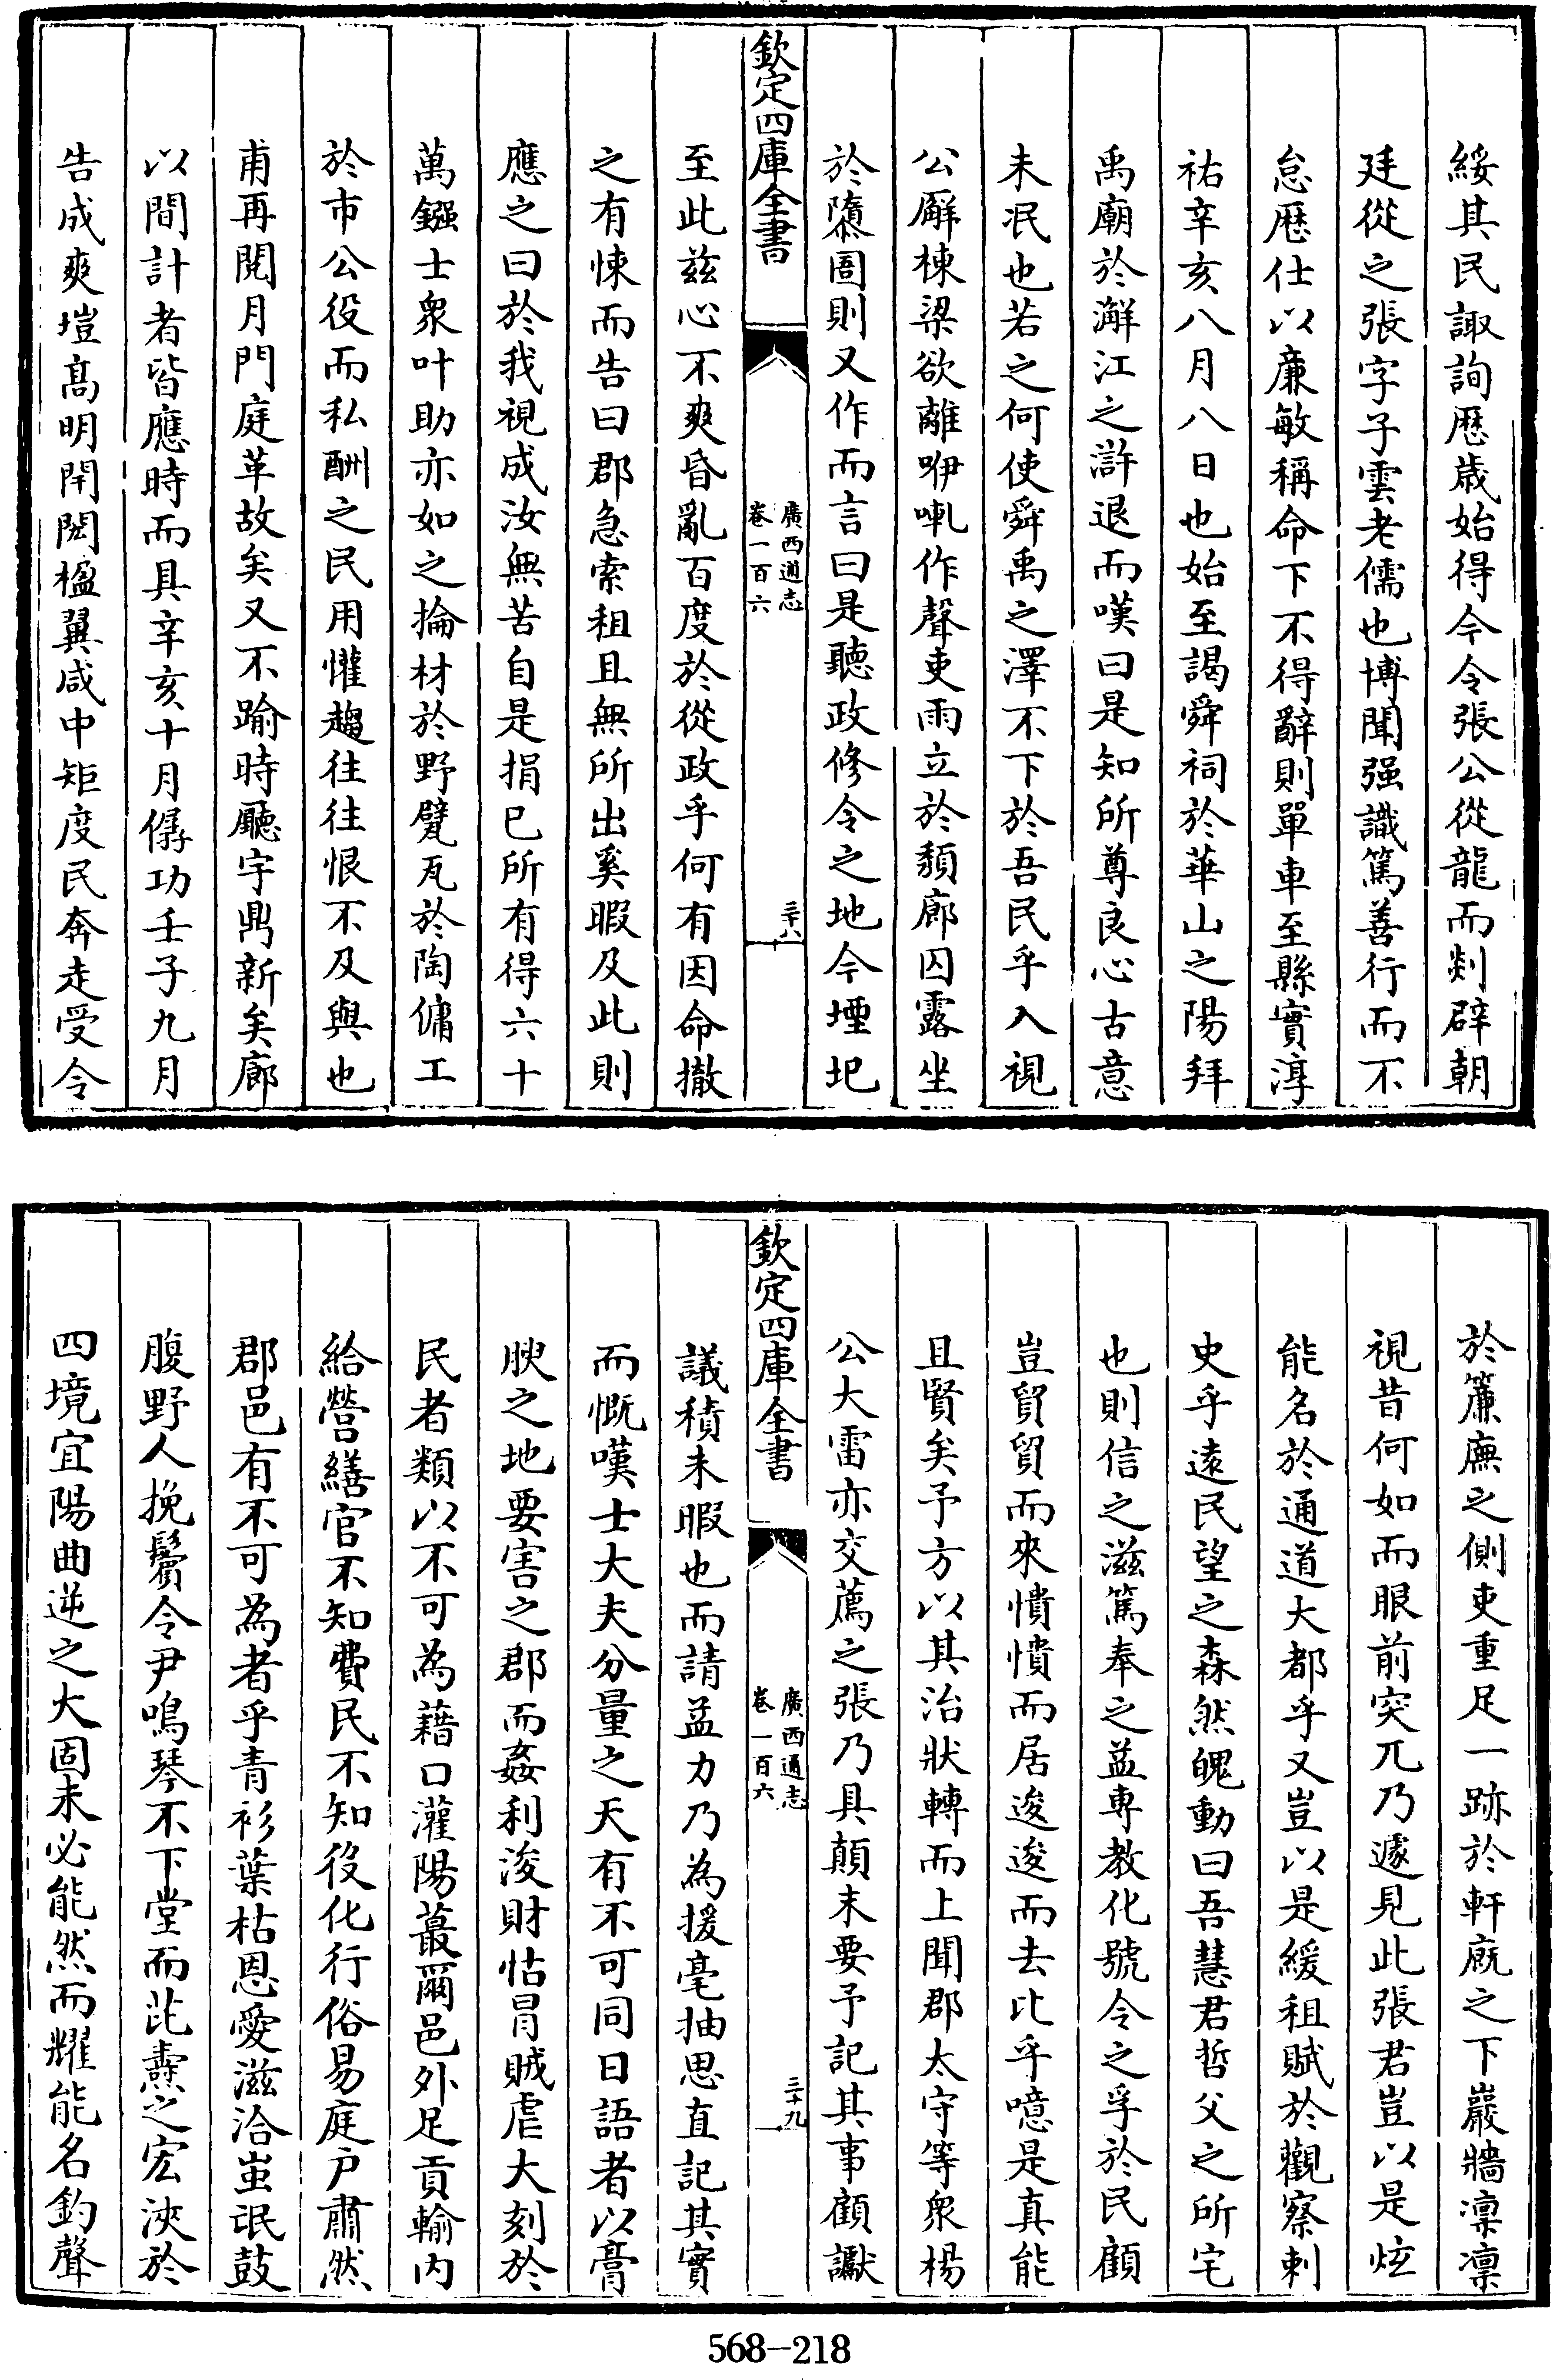 綏其民諏詢歴歲始得今令張公從龍而剡辟朝
廷從之張字子雲老儒也博聞强識篤善行而不
怠歴仕以廉敏稱命下不得辭則單車至縣實淳
祐辛亥八月八日也始至謁舜祠於華山之陽拜
禹廟於澥江之滸退而嘆曰是知所尊良心古意
未泯也若之何使舜禹之澤不下於吾民乎入視
公廨棟梁欲離咿喇作聲吏雨立於頽廊囚露坐
於隳圄則又作而言曰是聽政修令之地今堙圮
欽定四庫全書
廣西通志
卷一百六
三十八
至此兹心不爽昏亂百度於從政乎何有因命撤
之有悚而告曰郡急索租且無所出奚暇及此則
應之曰於我視成汝無苦自是捐已所有得六十
萬鏹士衆叶助亦如之掄材於野甓瓦於陶傭工
於市公役而私酬之民用懽趨往往恨不及與也
甫再閱月門庭革故矣又不踰時廳宇鼎新矣廊
以間計者皆應時而具辛亥十月僝功壬子九月
告成爽塏髙明閈閎楹翼咸中矩度民奔走受令
於簾廡之側吏重足一跡於軒廐之下巖牆凛凛
視昔何如而眼前突兀乃遽見此張君豈以是炫
能名於通道大都乎又豈以是緩租賦於觀察刺
史乎逺民望之森然魄動曰吾慧君哲父之所宅
也則信之滋篤奉之益専教化號令之孚於民顧
豈貿貿而來憒憒而居逡逡而去比乎噫是真能
且賢矣予方以其治狀轉而上聞郡太守等衆楊
公大雷亦交薦之張乃具顛末要予記其事顧讞
欽定四庫全書
廣西通志
卷一百六
三十九
議積未暇也而請益力乃為援毫抽思直記其實
而慨嘆士大夫分量之天有不可同日語者以膏
腴之地要害之郡而姦利浚財怙冒賊虐大刻於
民者類以不可為藉口灌陽蕞爾邑外足貢輸内
給營繕官不知費民不知役化行俗易庭户肅然
郡邑有不可為者乎青衫葉枯恩愛滋洽蚩氓鼓
腹野人挽鬚令尹鳴琴不下堂而茈燾之宏浹於
四境宜陽曲逆之大固未必能然而耀能名釣聲
568-218